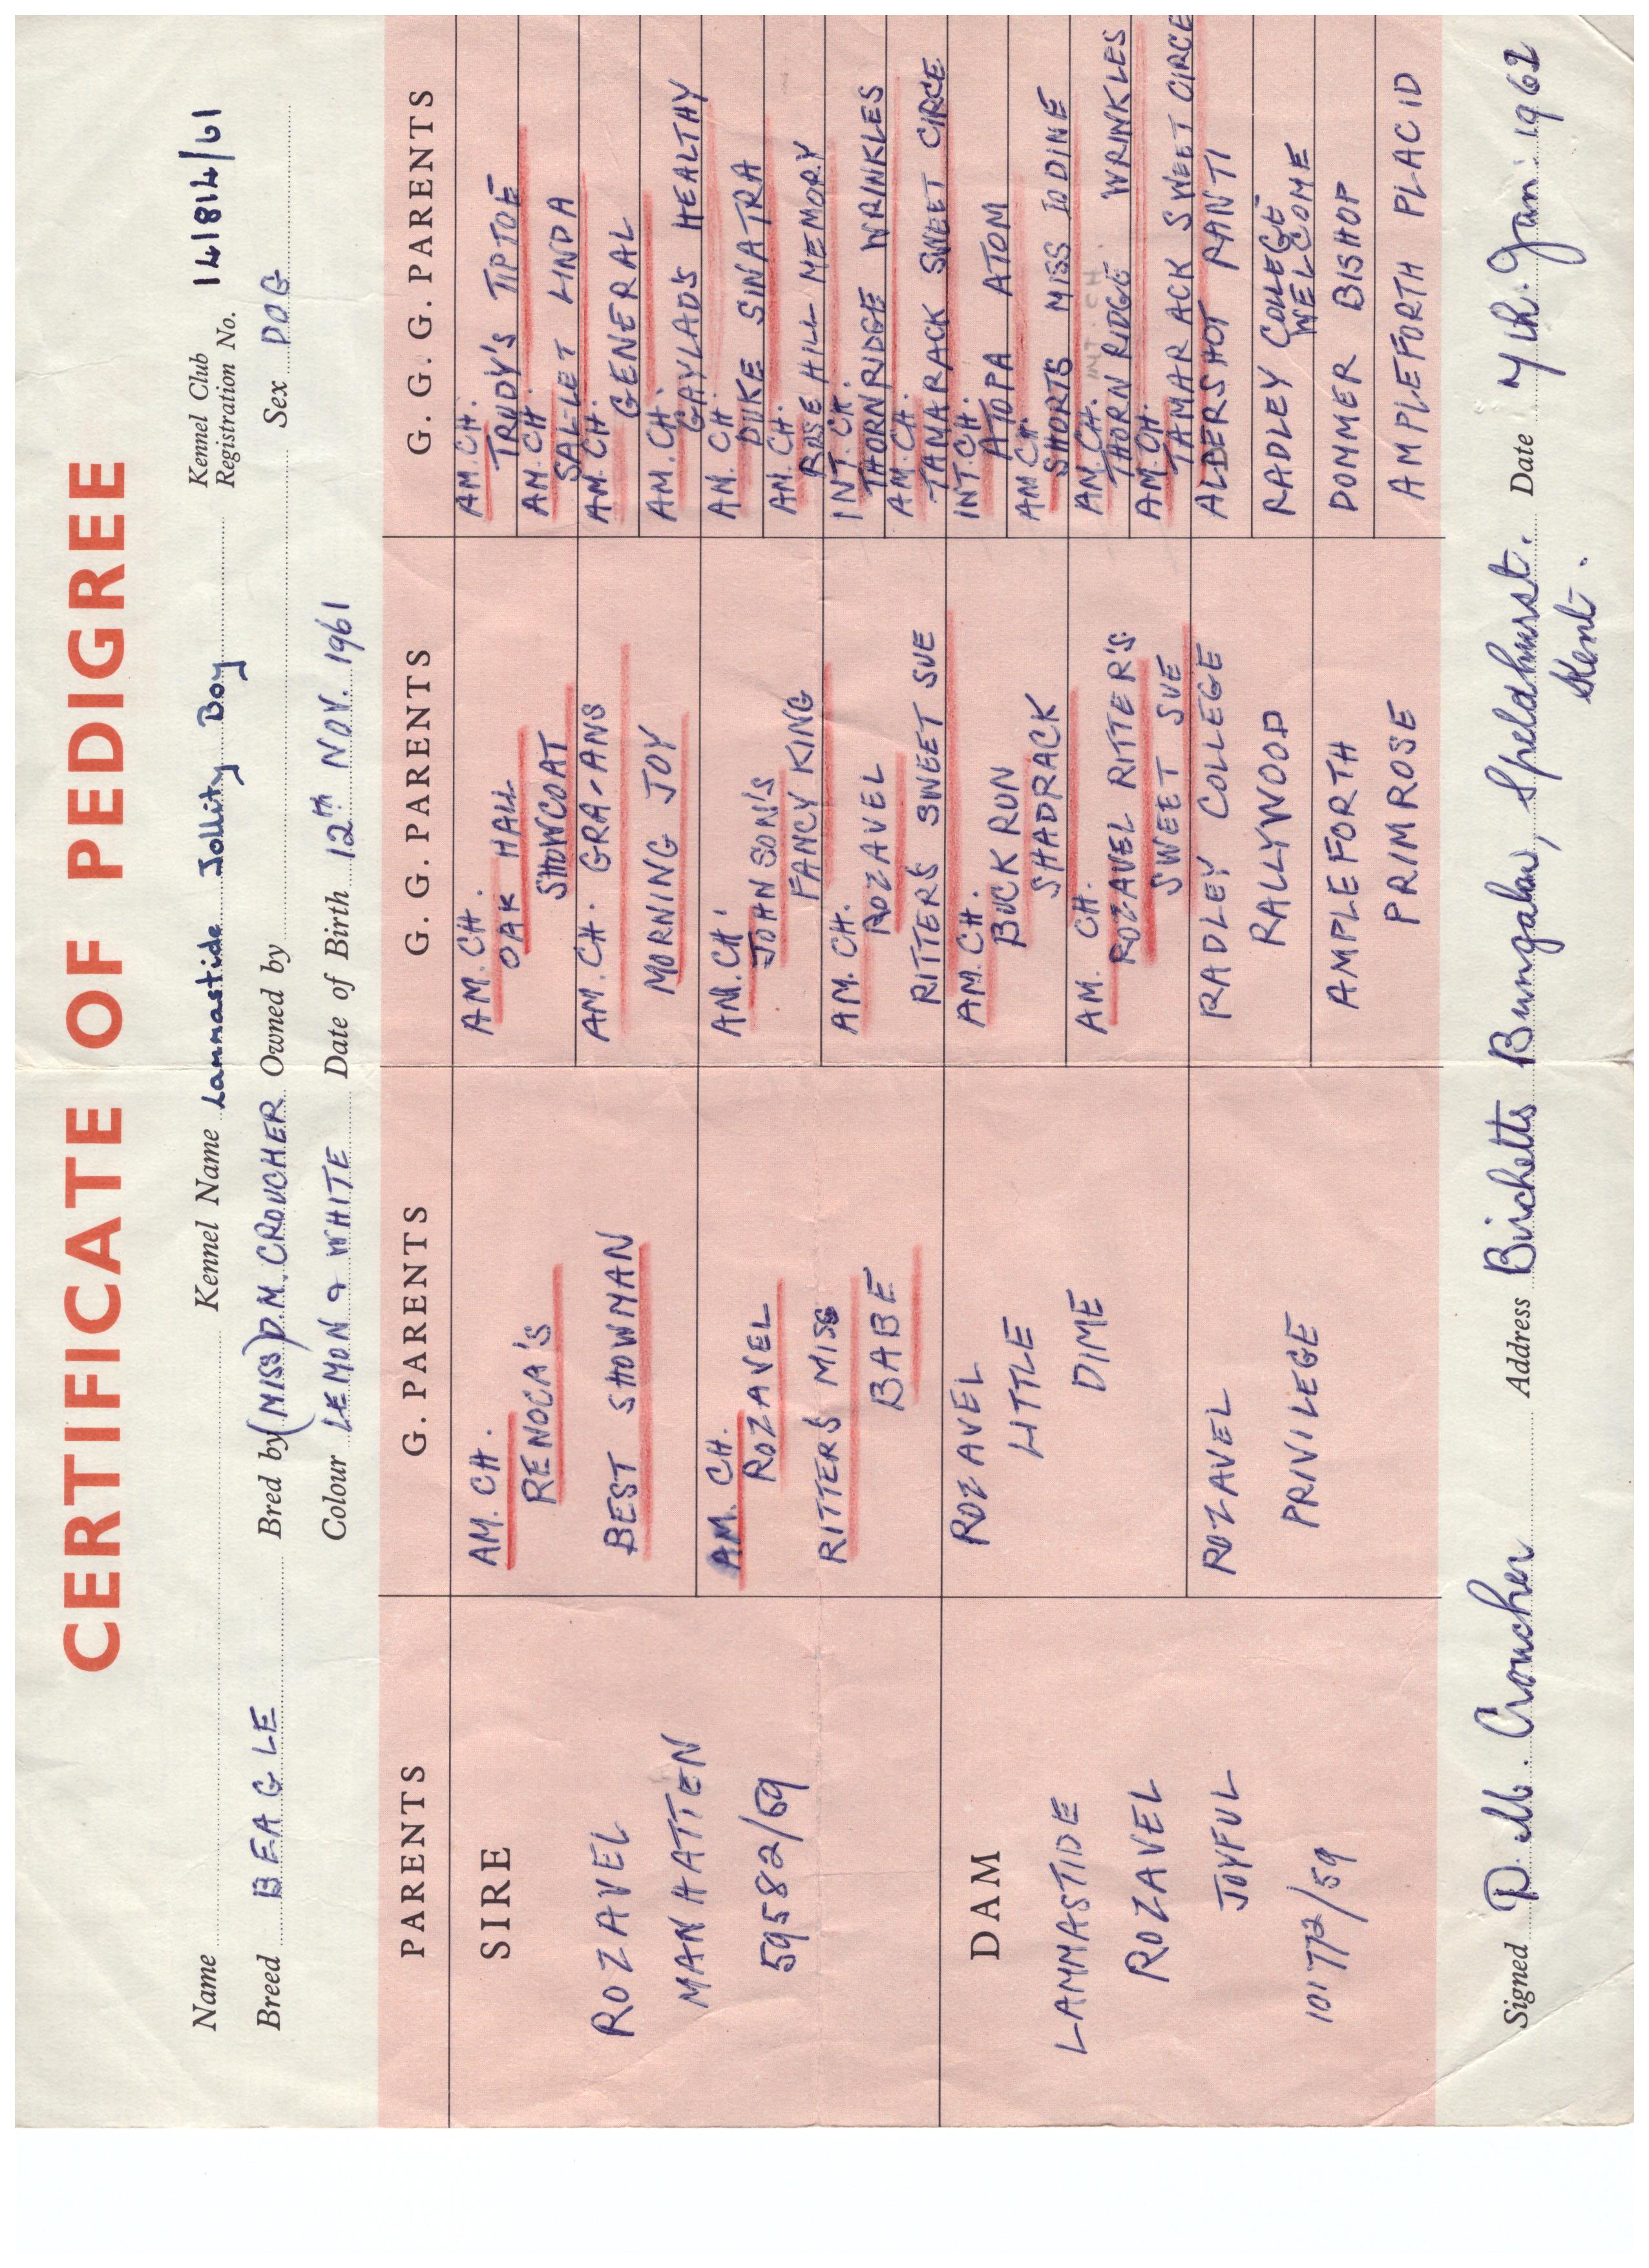 CERTIFICATE OF PEDIGREE
Name Kennel Name Lammastide Jollity Boy Kennel Club Registration No. 141814/61
Breed BEAGLE Bred by (MISS) D.M. CROUCHER Owned by Sex DOG
Colour LEMON & WHITE Date of Birth 12th NOV. 1961
PARENTS G. PARENTS G. G. PARENTS G. G. G. PARENTS
SIRE
ROZAVEL
MANHATTEN
59582/59
DAM
LAMMASTIDE
ROZAVEL
JOYFUL
101772/59
AM. CH.
RENOCA'S
BEST SHOWMAN
AM. CH.
ROZAVEL
RITTERS MISS
BABE
ROZAVEL
LITTLE
DIME
ROZAVEL
PRIVILEGE
AM. CH.
OAK HALL
SHOWCOAT
AM. CH. GRA-ANS
MORNING JOY
AM. CH.
JOHNSON'S
FANCY KING
AM. CH.
ROZAVEL
RITTERS SWEET SUE
AM. CH.
BUCK RUN
SHADRACK
AM. CH.
ROZAVEL RITTER'S
SWEET SUE
RADLEY COLLEGE
RALLYWOOD
AMPLEFORTH
PRIMROSE
AM. CH.
TRUDY'S TIPTOE
AM. CH.
SALLET LINDA
AM. CH.
GENERAL
AM. CH.
GAYLADS HEALTHY
AM. CH.
DUKE SINATRA
AM. CH.
ROSE HILL MEMORY
INT. CH.
THORNRIDGE WRINKLES
AM. CH.
TAMARACK SWEET CIRCE
INT. CH.
ATOPA ATOM
AM CH.
SHORTS MISS IODINE
AM. CH. INT. CH
THORN RIDGE WRINKLES
AM. CH.
TAMARACK SWEET CIRCE
ALDERSHOT RANTI
RADLEY COLLEGE
WELCOME
DOMMER BISHOP
AMPLEFORTH PLACID
Signed D. M. Croucher Address Birchetts Bungalow, Speldhurst. Date 7th. Jan. 1962
Kent.